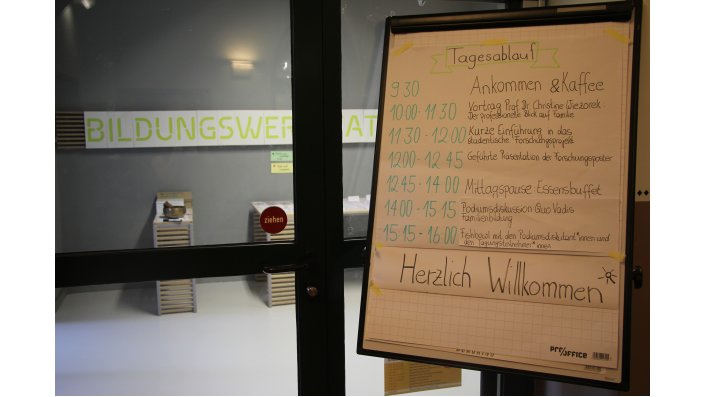 BILDUNGSWER AT
ziehen
Tagesablauf
9:30 Ankommen & Kaffee
10:00 - 11:30 Vortrag Prof. Dr. Christine Wiezorek:
Der professionelle Blick auf Familie
11:30 - 12:00 Kurze Einführung in das
studentische Forschungsprojekt
12:00 - 12:45 Geführte Präsentation der Forschungsposter
12:45 - 14:00 Mittagspause Essensbuffet
14:00 - 15:15 Podiumsdiskussion Quo Vadis
Familienbildung
15:15 - 16:00 Fishbowl mit den Podiumsdiskutant*innen und
den Tagungsteilnehmer*innen
Herzlich Willkommen
PRO/OFFICE